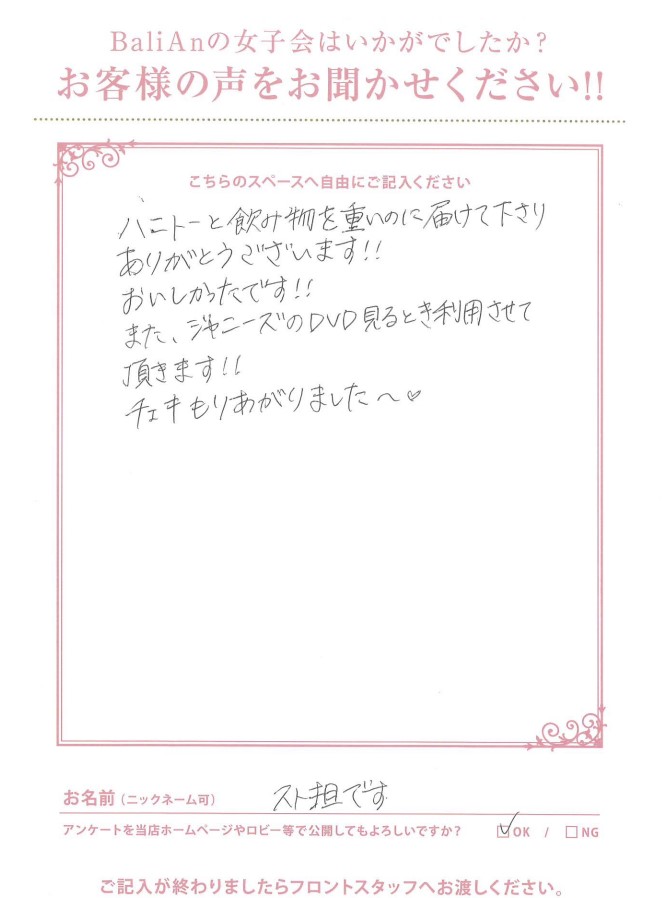 BaliAnの女子会はいかがでしたか？
お客様の声をお聞かせください!!
こちらのスペースへ自由にご記入ください
ハニトーと飲み物を重いのに届けて下さり
ありがとうございます!!
おいしかったです!!
また、ジャニーズのDVD見るとき利用させて
頂きます!!
チェキもりあがりました〜♡
お名前（ニックネーム可） スト担です
アンケートを当店ホームページやロビー等で公開してもよろしいですか？ ☑OK / □NG
ご記入が終わりましたらフロントスタッフへお渡しください。